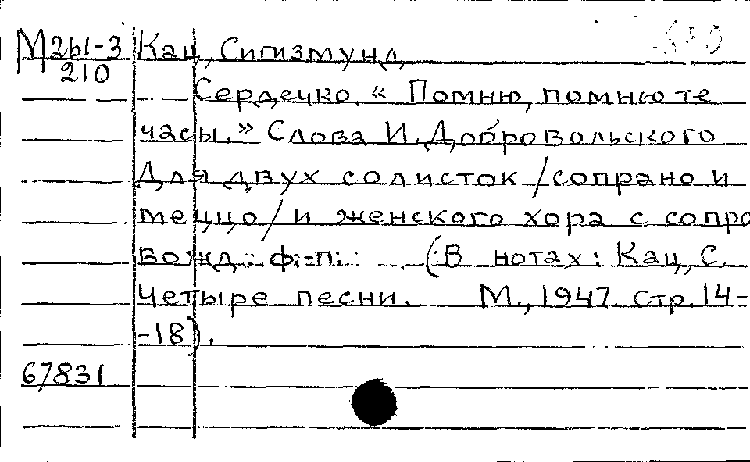 М2Ы-3 Кац, Сигизмунд
210
Сердечко. « Помню, помню те
часы.» Слова И. Добровольского
Для двух солисток /сопрано и
меццо/ и женского хора с сопро
вожд. ф.-п. (В нотах: Кац, С.
Четыре песни. М., 1947. стр. 14-
-18).
67831